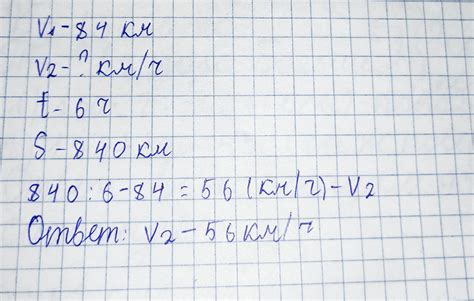 V1-84 км
V2-? км/ч
t-6ч
S-840 км
840:6-84=56(км/ч)-V2
Ответ: V2-56км/ч